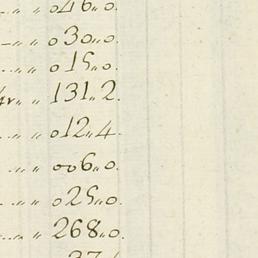 „ „ 046„0.
„ „ 030„0.
„ „ 015„0.
„ „ 131„2.
„ „ 012„4.
„ „ 006„0.
„ „ 025„0.
„ „ 268„0.